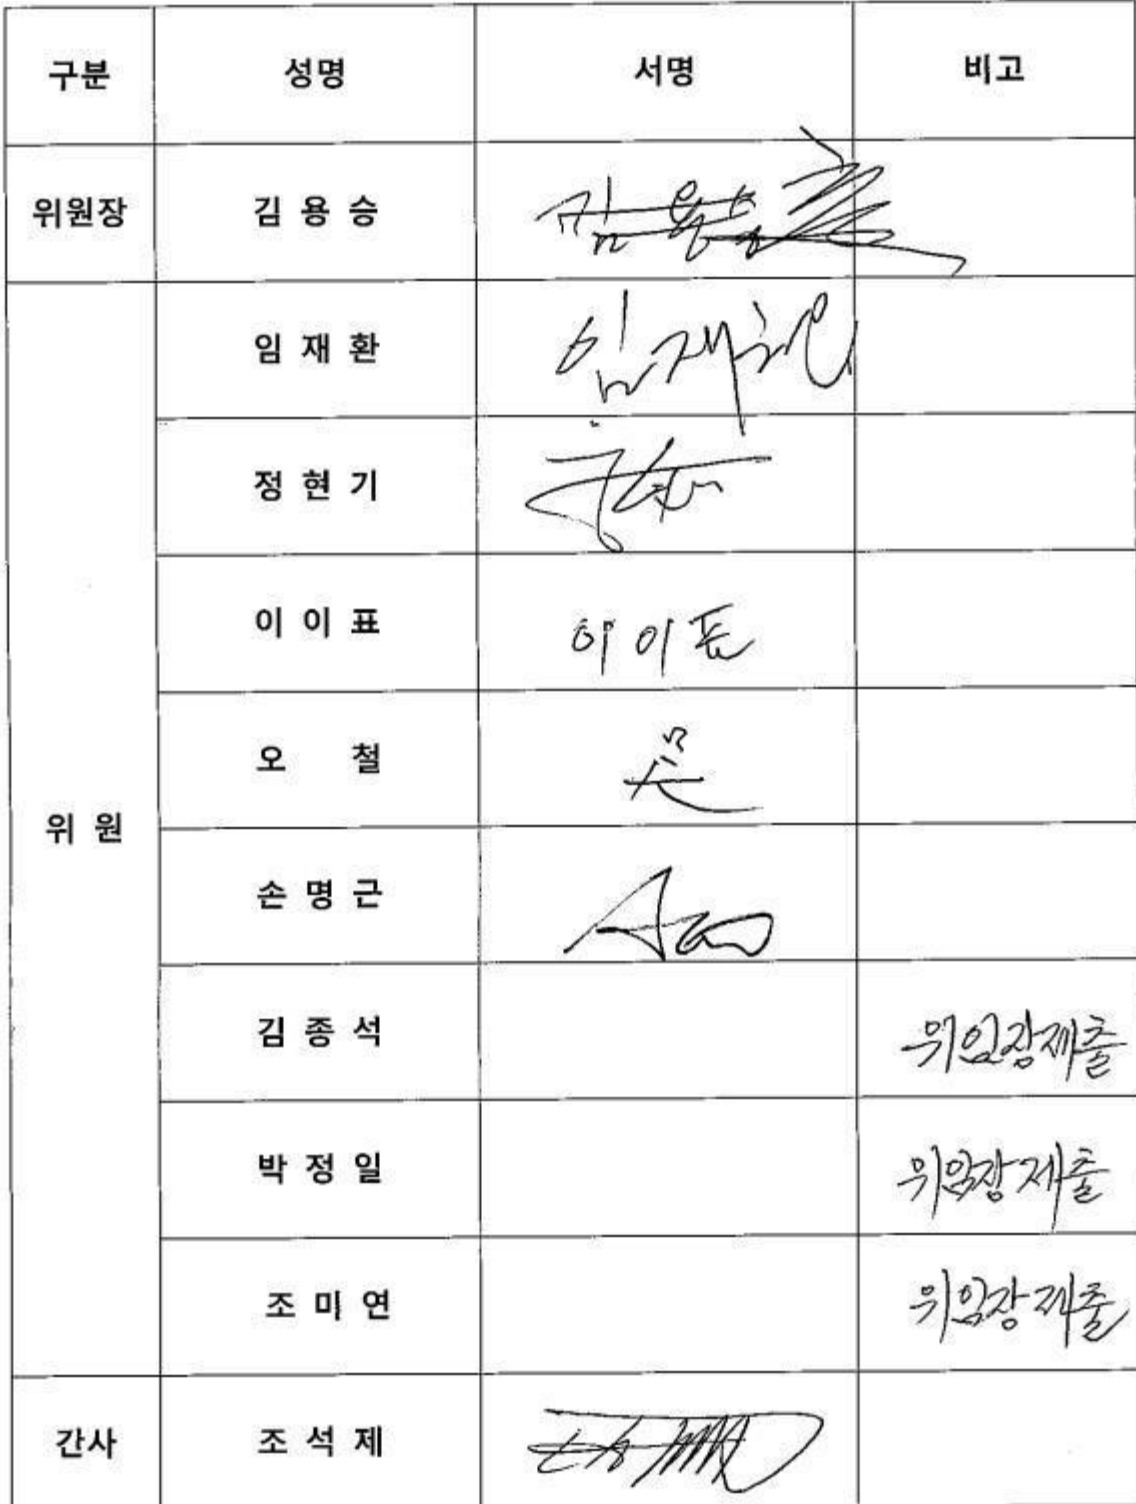 구분 성명 서명 비고
위원장 김 용 승
임 재 환 임재환
정 현 기
이 이 표 이이표
오 철
위 원
손 명 근
김 종 석 위임장제출
박 정 일 위임장 제출
조 미 연 위임장 제출
간사 조 석 제